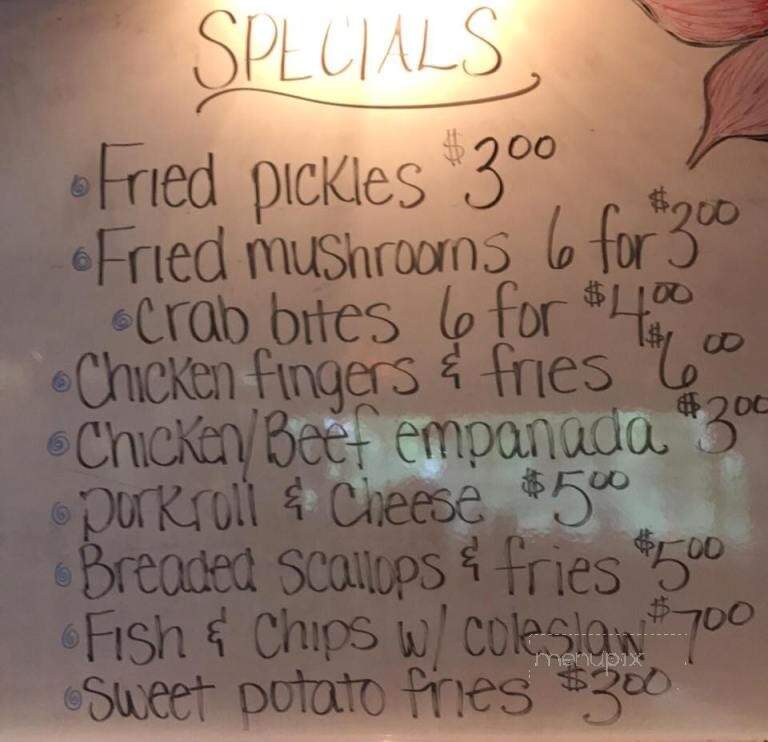 SPECIALS
Fried pickles $3.00
Fried mushrooms 6 for $3.00
Crab bites 6 for $4.00
Chicken fingers & fries $6.00
Chicken/Beef empanada $3.00
porkroll & Cheese $5.00
Breaded scallops & fries $5.00
Fish & Chips w/ coleslaw $7.00
menupix
sweet potato fries $3.00